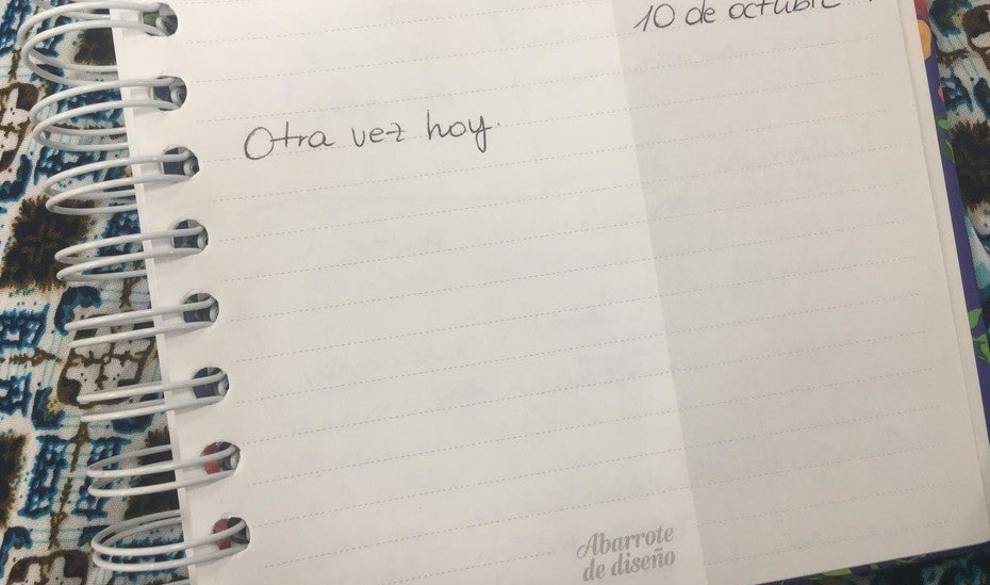 10 de octubre
Otra vez hoy.
Abarrote
de diseño